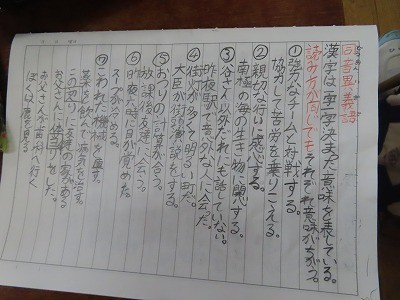 同音異義語
漢字は一字一字決まった意味を表している。
読み方が同じでもそれぞれ意味がちがう。
①強力なチームと対戦する。
協力して苦労を乗りこえる。
②親切な行いに感心する。
南極の海の生き物に関心する。
③谷さん以外だれにも話していない。
昨夜駅で意外な人に会った。
④街灯が多くて明るい町だ。
大臣が街頭演説をする。
⑤おつりの計算が合う。
放課後友達と会う。
⑥昨夜六時に目が覚めた。
スープが冷める。
⑦こわれた機械を直す。
薬を飲んで病気を治す。
この辺りに友達の家がある
お父さんに
お父さんが百へ行く
ぼくは